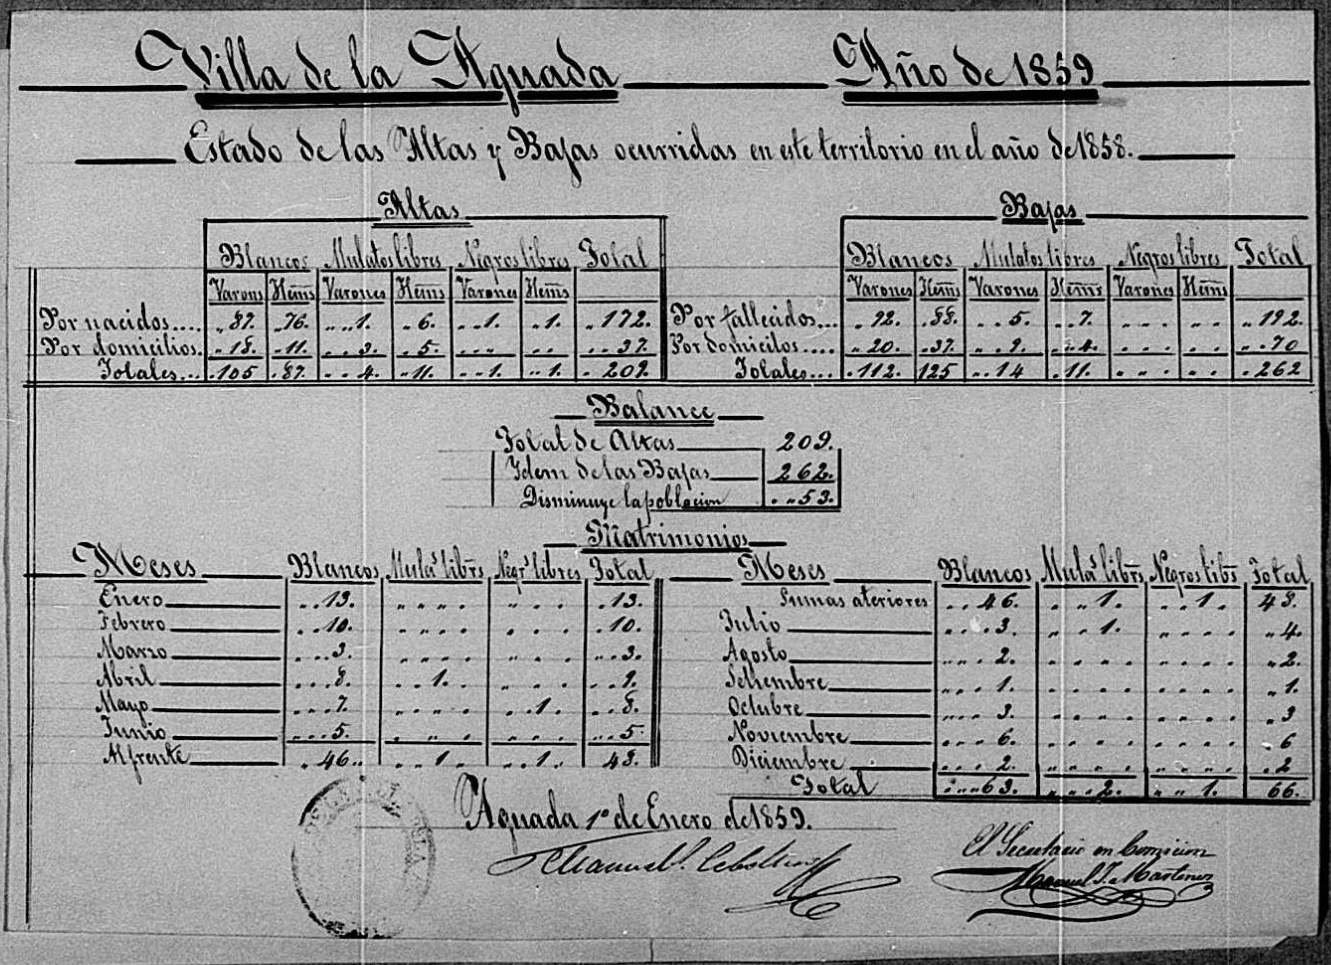 Villa de la Aguada Año de 1859
Estado de las Altas y Bajas ocurridas en este territorio en el año de 1858.
Altas Bajas
Blancos Mulatos libres Negros libres Total Blancos Mulatos libres Negros libres Total
Varons Hems Varones Hems Varones Hems Varones Hems Varones Hems Varones Hems
Por nacidos.... 87. 76. 1. 6. 1. 1. 172. Por fallecidos... 92. 88. 5. 7. 192.
Por domicilios. 18. 11. 3. 5. 37. Por domicilos.... 20. 37. 9. 4. 70
Totales... 105 87. 4. 11. 1. 1. 209. Totales... 112. 125 14 11. 262
Balance
Total de Altas 209.
Idem de las Bajas 262.
Disminuye la poblacion 53.
Matrimonios
Meses Blancos Mula.s lib.rs Negr.s libres Total Meses Blancos Mula.s lib.rs Negros lib.s Total
Enero 13. 13. Sumas ateriores 46. 1. 1. 48.
Febrero 10. 10. Julio 3. 1. 4.
Marzo 3. 3. Agosto 2. 2.
Abril 8. 1. 9. Setiembre 1. 1.
Mayo 7. 1. 8. Octubre 3. 3
Junio 5. 5. Noviembre 6. 6
Al frente 46. 1 1. 48. Diciembre 2. 2
Total 63. 2. 1. 66.
Aguada 1º de Enero de 1859.
El Secretario en Comicion
Manuel J. Martinez